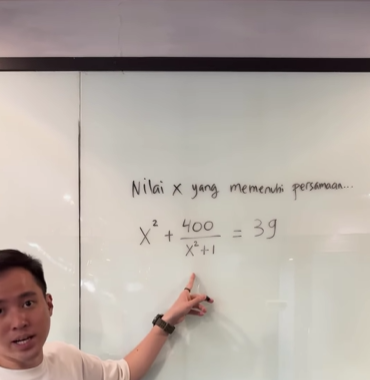 Nilai x yang memenuhi persamaan...
x² + 400/(x²+1) = 39